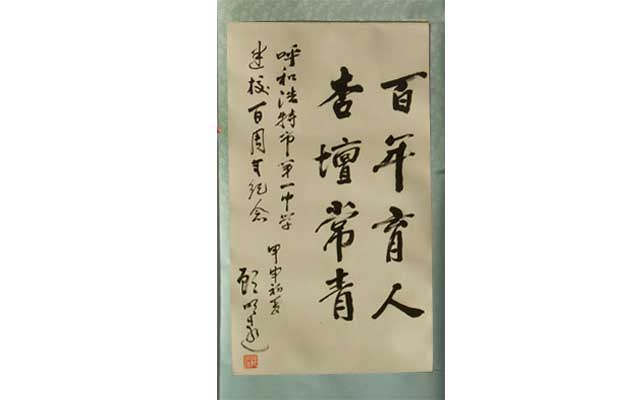 百年育人
杏壇常青
呼和浩特市第一中学
建校百周年纪念
甲申初夏
顾明远